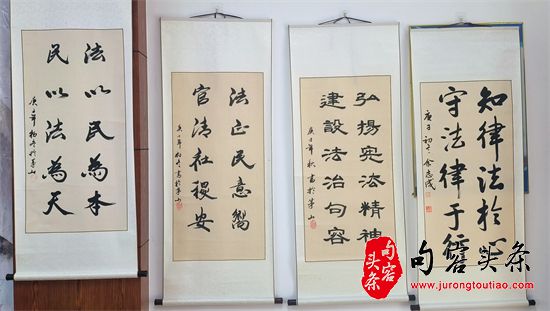 法以民為本
民以法為天
庚子年初冬於茅山
法正民意嚮
官清社稷安
庚子年初冬書於茅山
弘揚宪法精神
建設法治句容
庚子年秋書於茅山
知律法於心
守法律于
庚子初冬余志成
句容头条
句容头条
www.jurongtoutiao.com